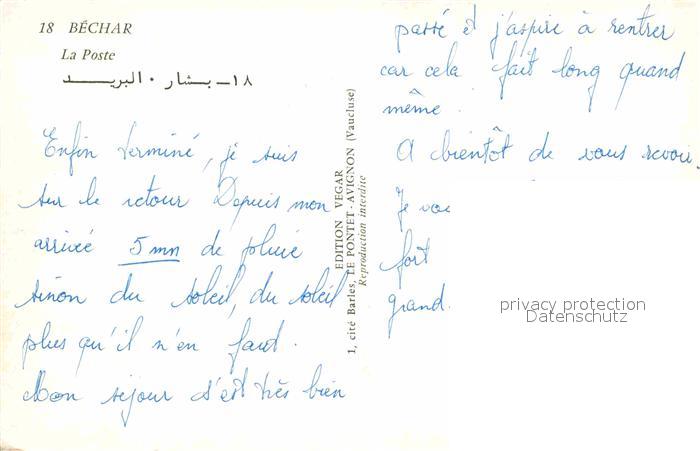 18 BÉCHAR
La Poste
١٨ – بشار • البريد
Enfin terminé, je suis
sur le retour Depuis mon
arrivée 5 mn de pluie
sinon du soleil, du soleil
plus qu'il n'en faut.
Mon séjour s'est très bien
EDITION VEGAR
1, cité Barles, LE PONTET - AVIGNON (Vaucluse)
Reproduction interdite
passé et j'aspire à rentrer
car cela fait long quand
même.
A bientôt de vous revoir.
Je
fort
grand.
privacy protection
Datenschutz